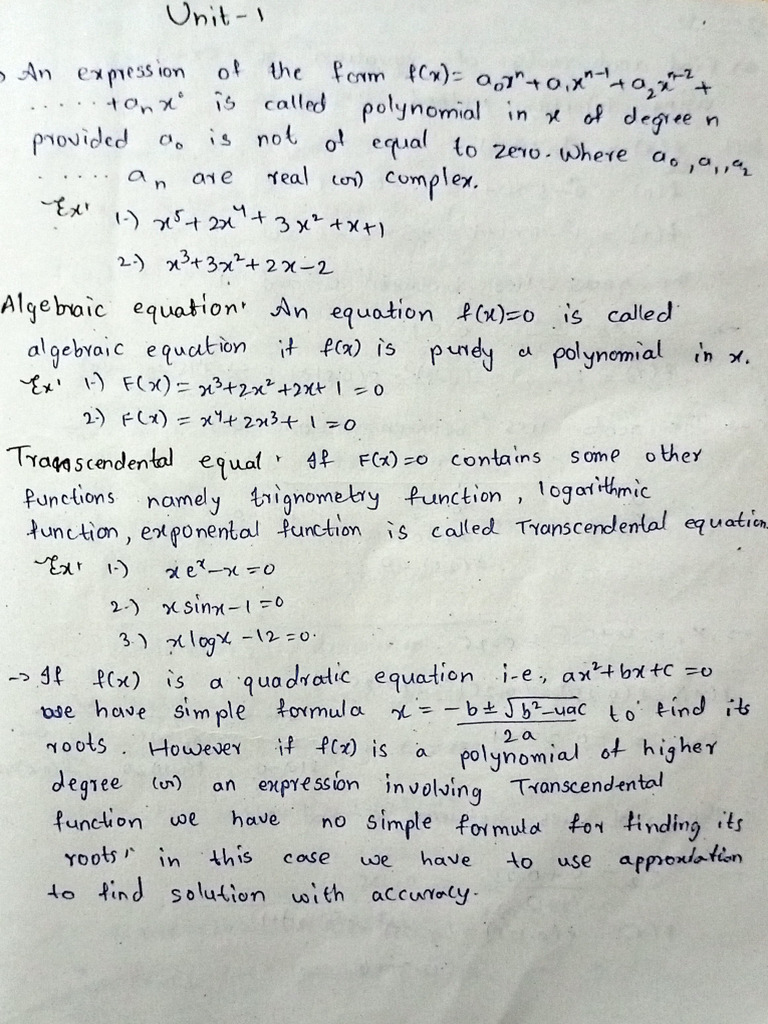 Unit-1
An expression of the form f(x)= a₀xⁿ+a₁xⁿ⁻¹+a₂xⁿ⁻²+
.....+aₙx⁰ is called polynomial in x of degree n
provided a₀ is not of equal to zero. Where a₀,a₁,a₂
..... aₙ are real (or) complex.
Ex: 1.) x⁵+2x⁴+3x²+x+1
2.) x³+3x²+2x-2
Algebraic equation: An equation f(x)=0 is called
algebraic equation if f(x) is purely a polynomial in x.
Ex: 1.) F(x)=x³+2x²+2x+1=0
2.) F(x)=x⁴+2x³+1=0
Transcendental equal: If F(x)=0 contains some other
functions namely trignometry function, logarithmic
function, exponental function is called Transcendental equation.
Ex: 1.) xeˣ-x=0
2.) xsinx-1=0
3.) xlogx-12=0.
-> If f(x) is a quadratic equation i.e., ax²+bx+c=0
we have simple formula x = -b±√b²-4ac/2a to find its
roots. However if f(x) is a polynomial of higher
degree (or) an expression involving Transcendental
function we have no simple formula for finding its
roots, in this case we have to use approxiation
to find solution with accuracy.